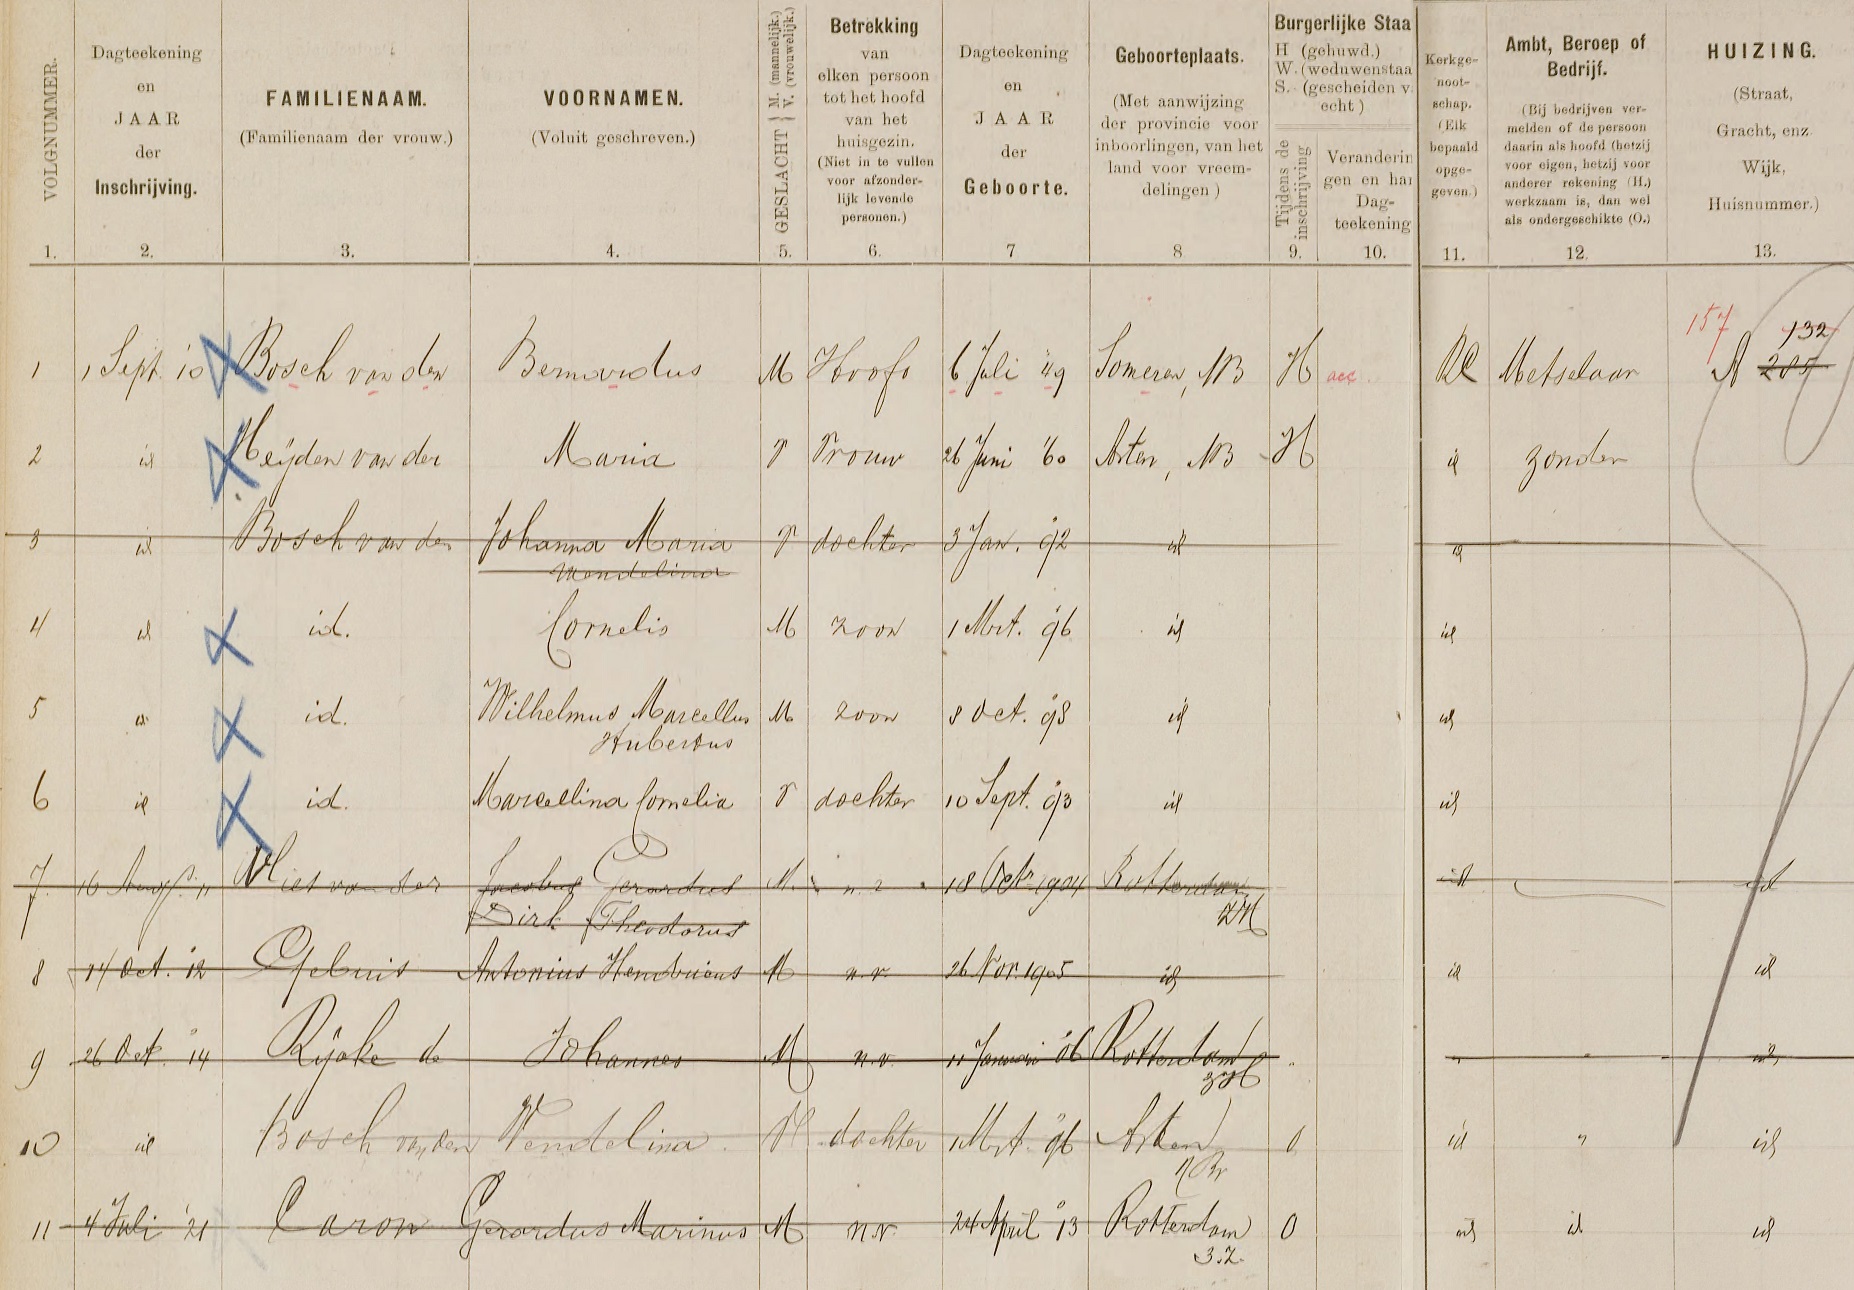 VOLGNUMMER.
Dagteekening
en
JAAR
der
Inschrijving.
FAMILIENAAM.
(Familienaam der vrouw.)
VOORNAMEN.
(Voluit geschreven.)
GESLACHT { M. (mannelijk.) V. (vrouwelijk.)
Betrekking
van
elken persoon
tot het hoofd
van het
huisgezin.
(Niet in te vullen
voor afzonder-
lijk levende
personen.)
Dagteekening
en
JAAR
der
Geboorte.
Geboorteplaats.
(Met aanwijzing
der provincie voor
inboorlingen, van het
land voor vreem-
delingen )
Burgerlijke Staa
H (gehuwd.)
W. (weduwenstaa
S. (gescheiden v.
echt )
Tijdens de
inschrijving
Veranderin
gen en har
Dag-
teekening
Kerkge-
noot-
schap.
(Elk
bepaald
opge-
geven.)
Ambt, Beroep of
Bedrijf.
(Bij bedrijven ver-
melden of de persoon
daarin als hoofd (hetzij
voor eigen, hetzij voor
anderer rekening (H.)
werkzaam is, dan wel
als ondergeschikte (O.)
HUIZING.
(Straat,
Gracht, enz.
Wijk,
Huisnummer.)
1. 2. 3. 4. 5. 6. 7 8 9. 10. 11. 12. 13.
157 132
1 1 Sept. '10 Bosch van den Bernardus M Hoofd 6 Juli '49 Someren, NB H acc. RC Metselaar A 285
2 id Heijden van der Maria V Vrouw 26 Juni '60 Asten, NB H id zonder
3 id Bosch van den Johanna Maria V dochter 3 Jan. '92 id id
Wendelina
4 id id. Cornelis M zoon 1 Mrt. '96 id id
5 id id. Wilhelmus Marcellus M zoon 8 Oct. '98 id id
Hubertus
6 id id. Marcellina Cornelia V dochter 10 Sept. '93 id id
7. 16 Aug. '11 Vliet van der Jacobus Gerardus M. n. v. 18 Oct 1904 Rotterdam id id
Dirk Theodorus ZH
8 14 Oct. '12 Antonius Hendricus M n.v. 26 Nov. 1905 id id id
9 26 Oct '14 Rijcke de Johannes M n.v. 11 Januari '06 Rotterdam " " id
ZH
10 id Bosch van den Wendelina V dochter 1 Mrt. '96 Asten O id " id
N Br
11 4 Juli '21 Caron Gerardus Marinus M n.v. 24 April '13 Rotterdam O id id id
3.Z.